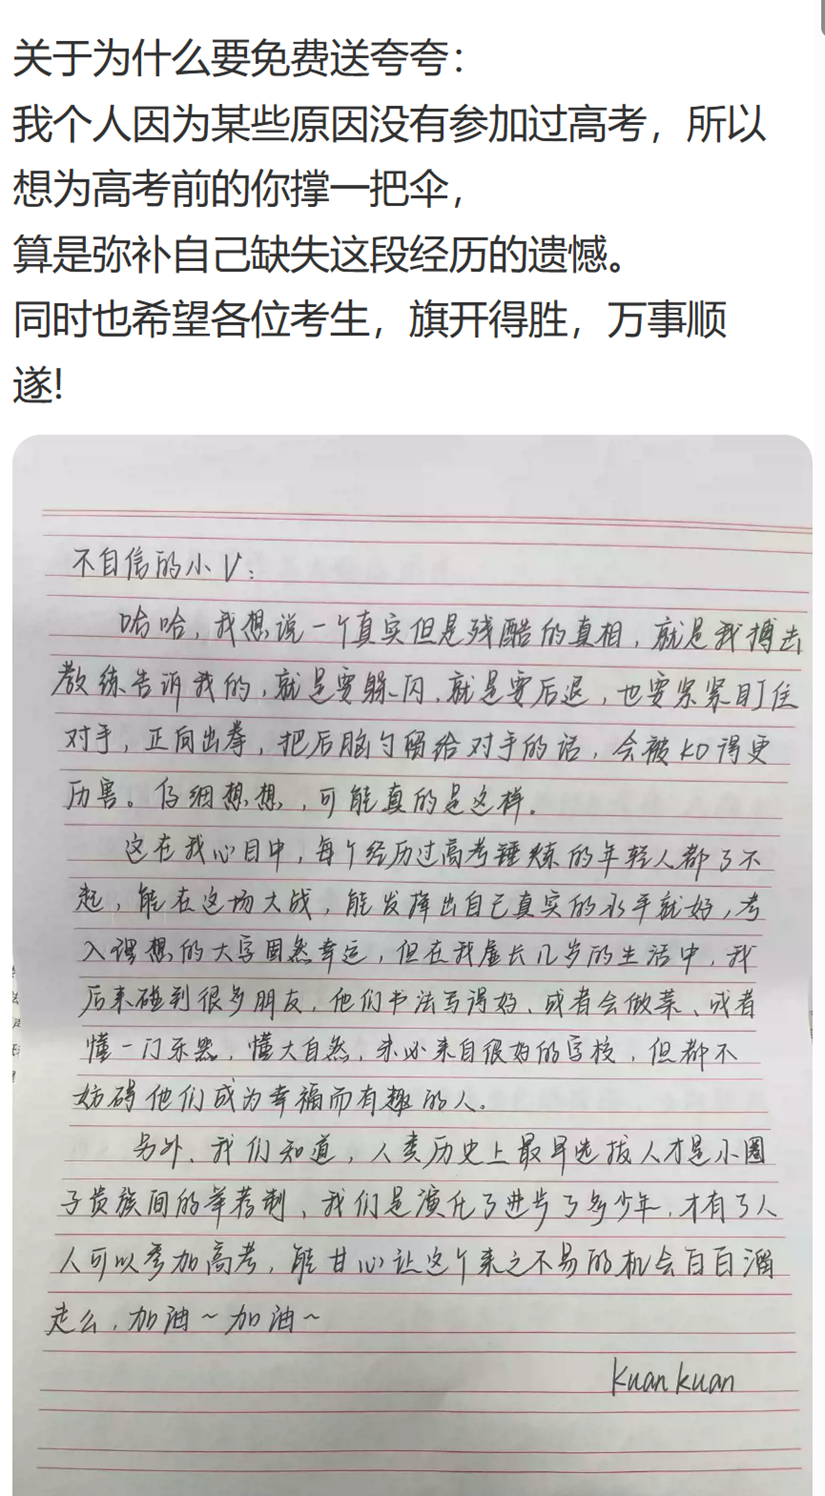 关于为什么要免费送夸夸：
我个人因为某些原因没有参加过高考，所以
想为高考前的你撑一把伞，
算是弥补自己缺失这段经历的遗憾。
同时也希望各位考生，旗开得胜，万事顺
遂!
不自信的小V：
哈哈，我想说一个真实但是残酷的真相，就是我搏击
教练告诉我的，就是要躲闪、就是要后退，也要紧紧盯住
对手，正向出拳，把后脑勺留给对手的话，会被KO得更
厉害。仔细想想，可能真的是这样。
这在我心目中，每个经历过高考锤炼的年轻人都了不
起，能在这场大战，能发挥出自己真实的水平就好，考
入理想的大学固然幸运，但在我虚长几岁的生活中，我
后来碰到很多朋友，他们书法写得好、或者会做菜、或者
懂一门乐器，懂大自然，未必来自很好的学校，但都不
妨碍他们成为幸福而有趣的人。
另外，我们知道，人类历史上最早选拔人才是小圈
子贵族间的举荐制，我们是演化了进步了多少年，才有了人
人可以参加高考，能甘心让这个来之不易的机会白白溜
走么，加油~加油~
kuankuan